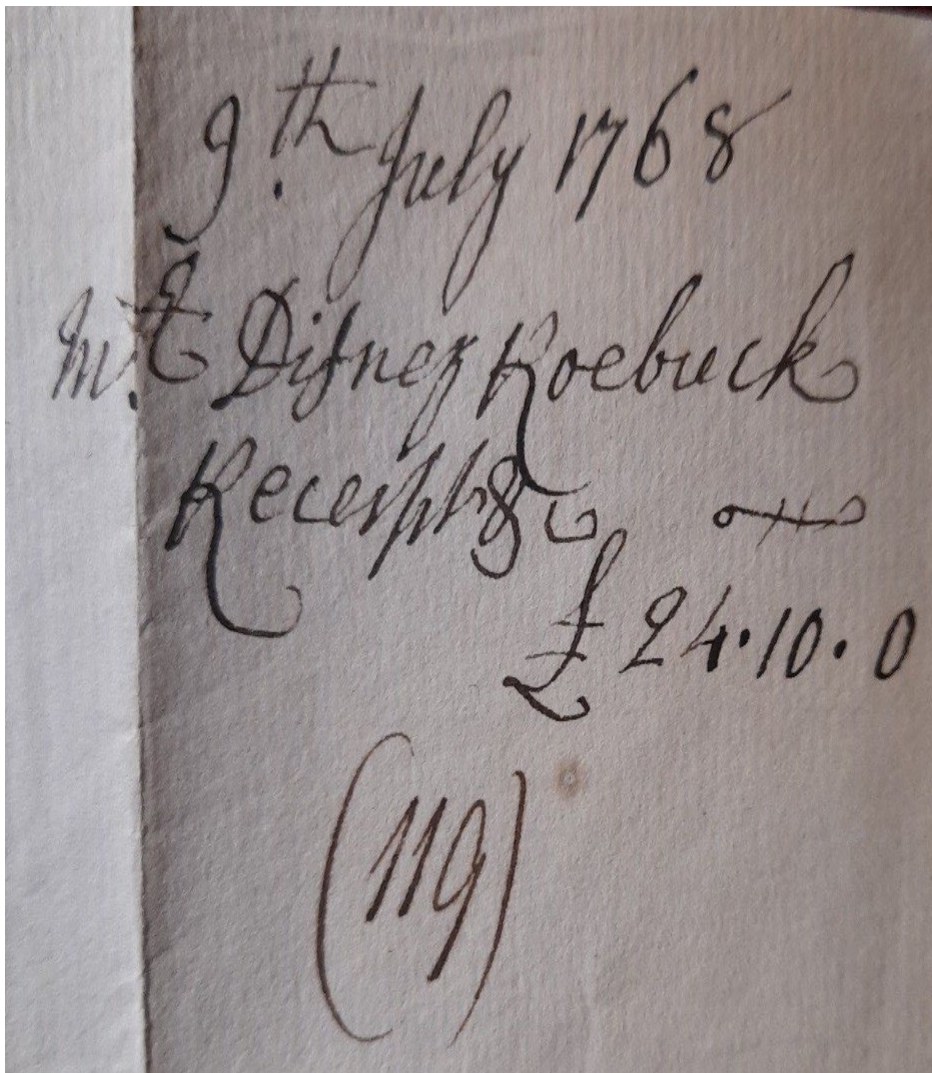 9.th July 1768
Mr. Disney Roebuck
Receipt
£ 24.10.0
(119)